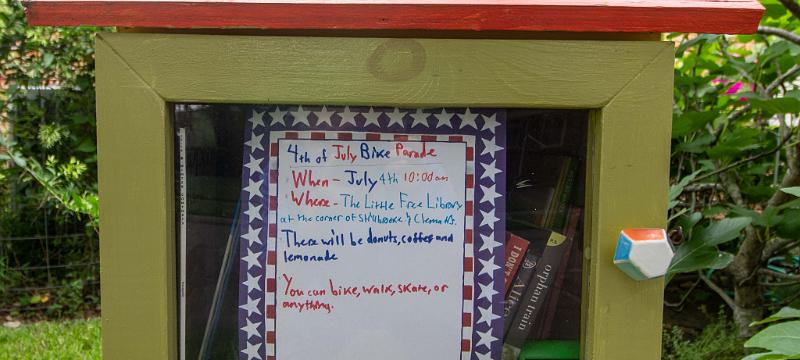 4th of July Bike Parade
When - July 4th 10:00am
Where - The Little Free Library
at the corner of & Clema
There will be donuts, coffee and
lemonade
You can bike, walk, skate, or
anything.
I DON'T
orphan train